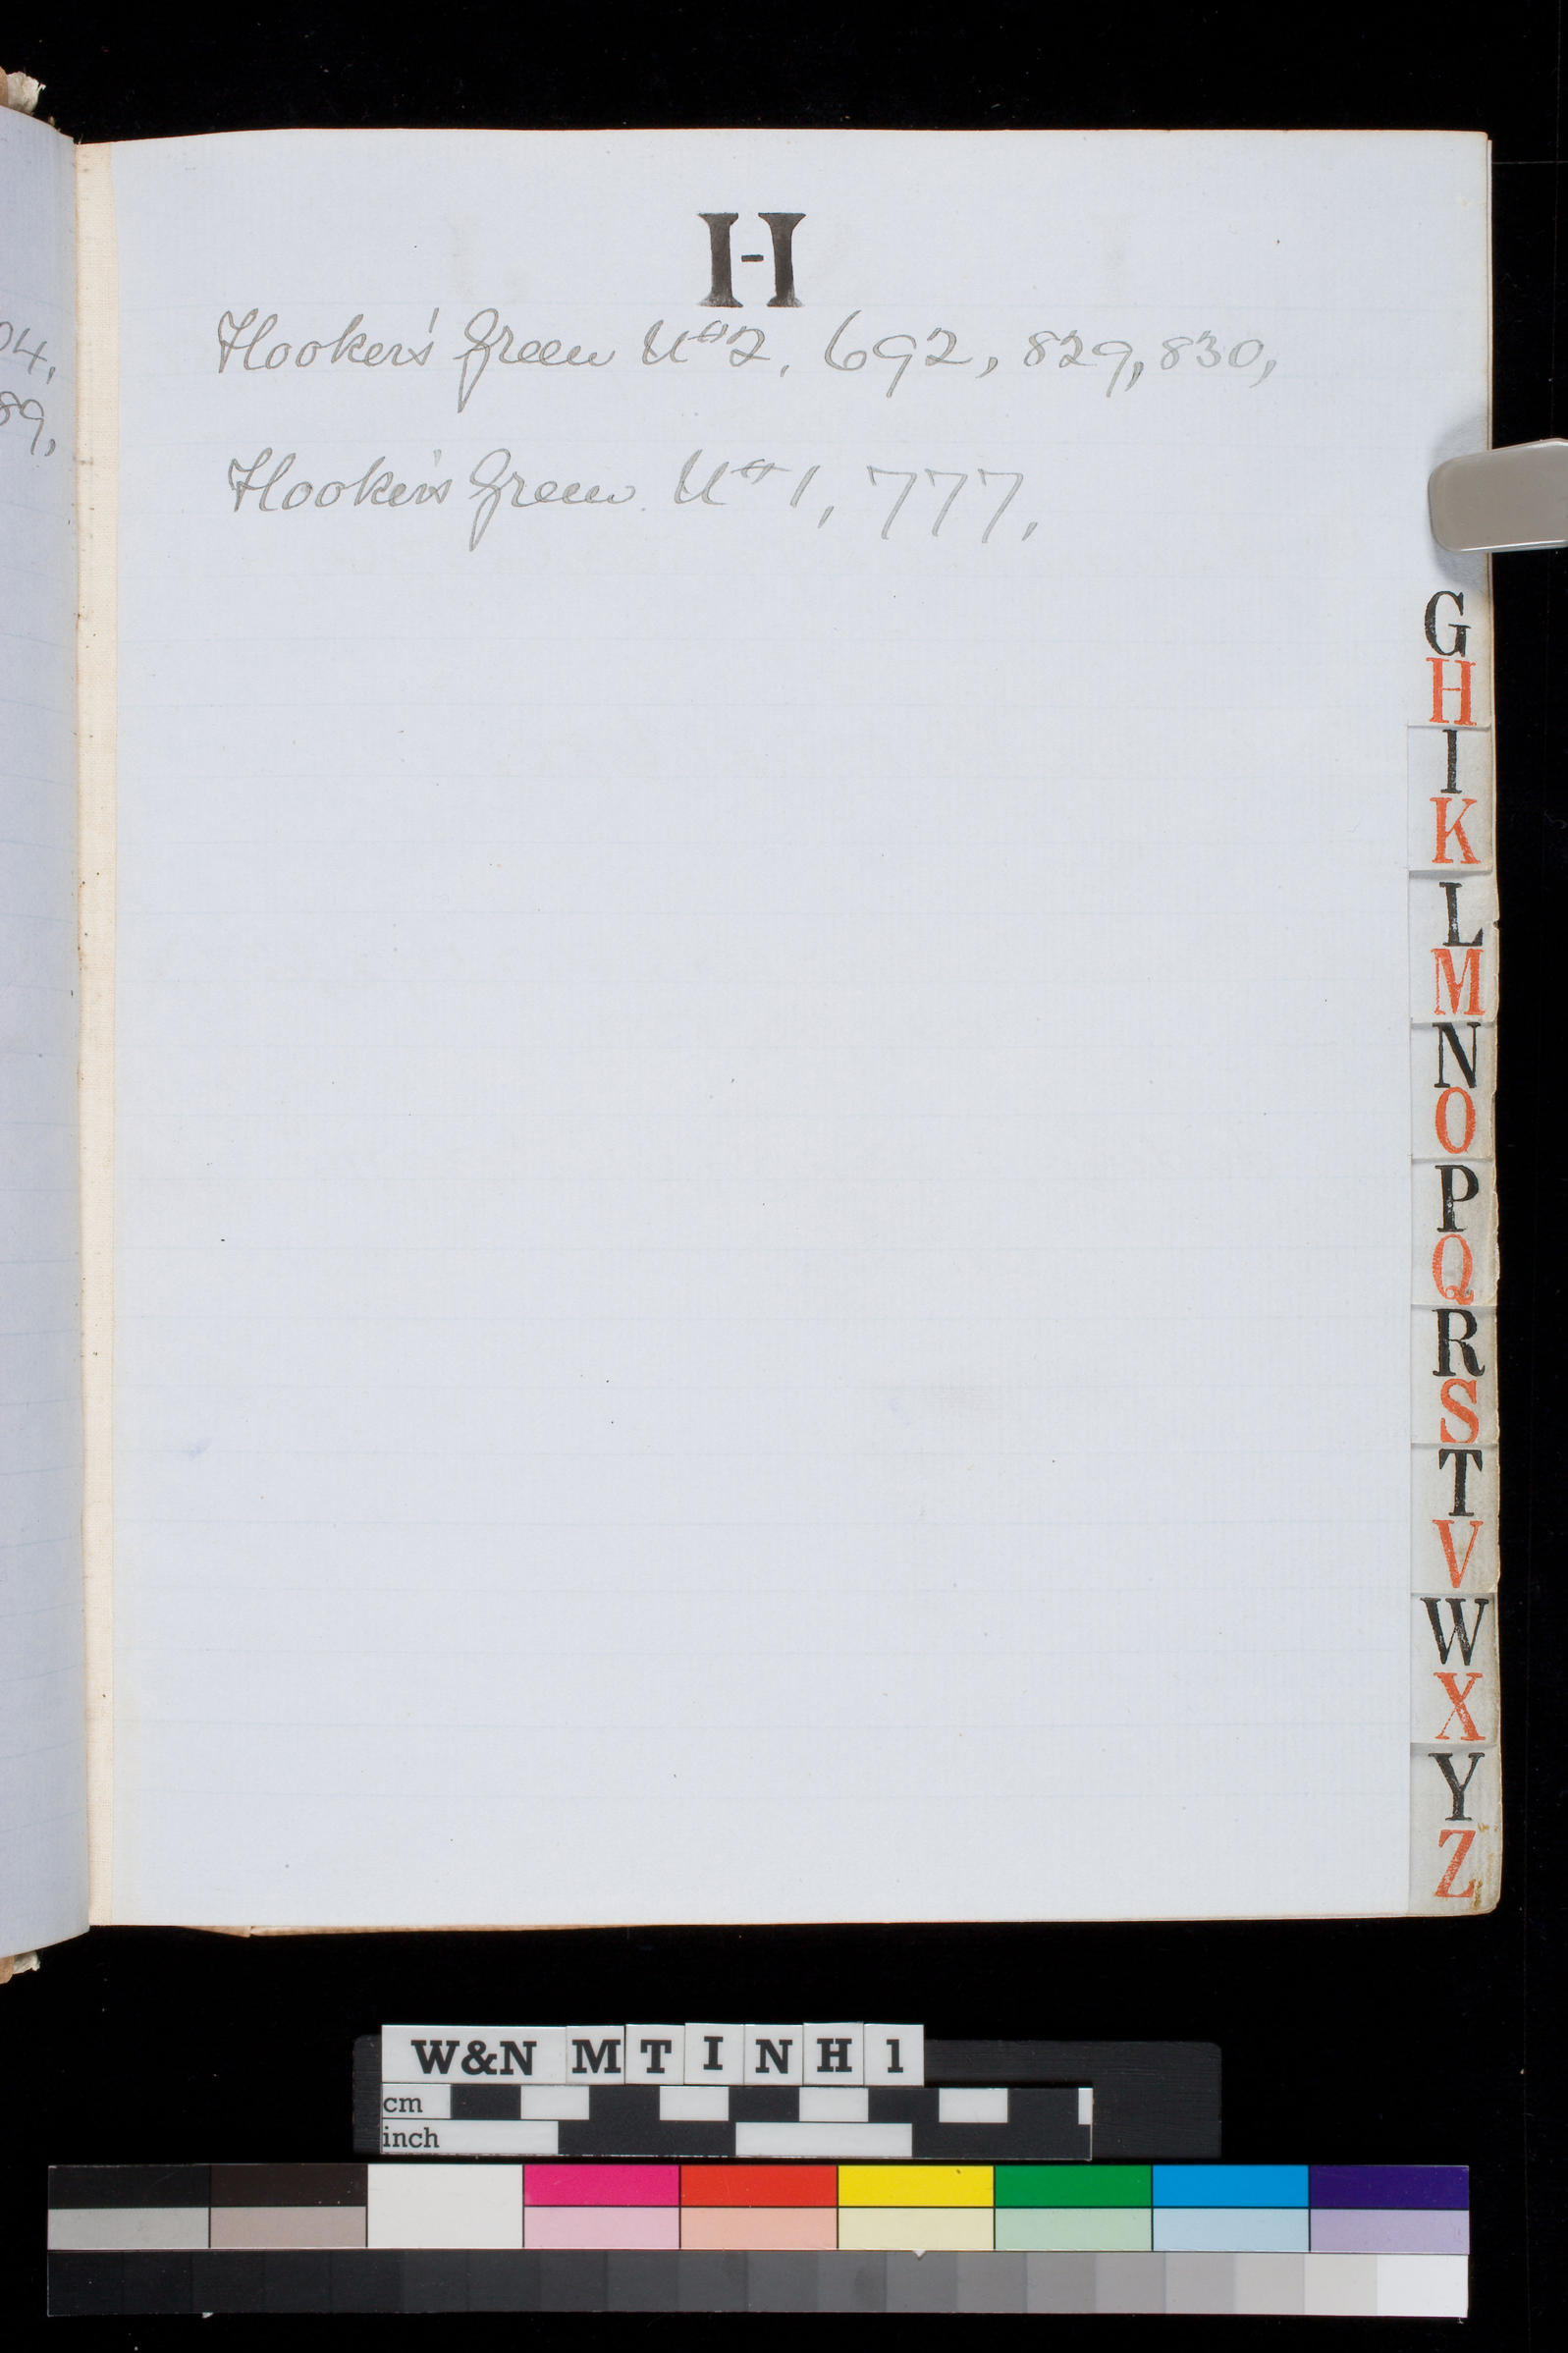 H
04,
Hooker's Green No 2, 692, 829, 830,
89,
Hooker's Green No 1, 777,
G
H
I
K
L
M
N
O
P
Q
R
S
T
V
W
X
Y
Z
W&N MTINH1
cm
inch